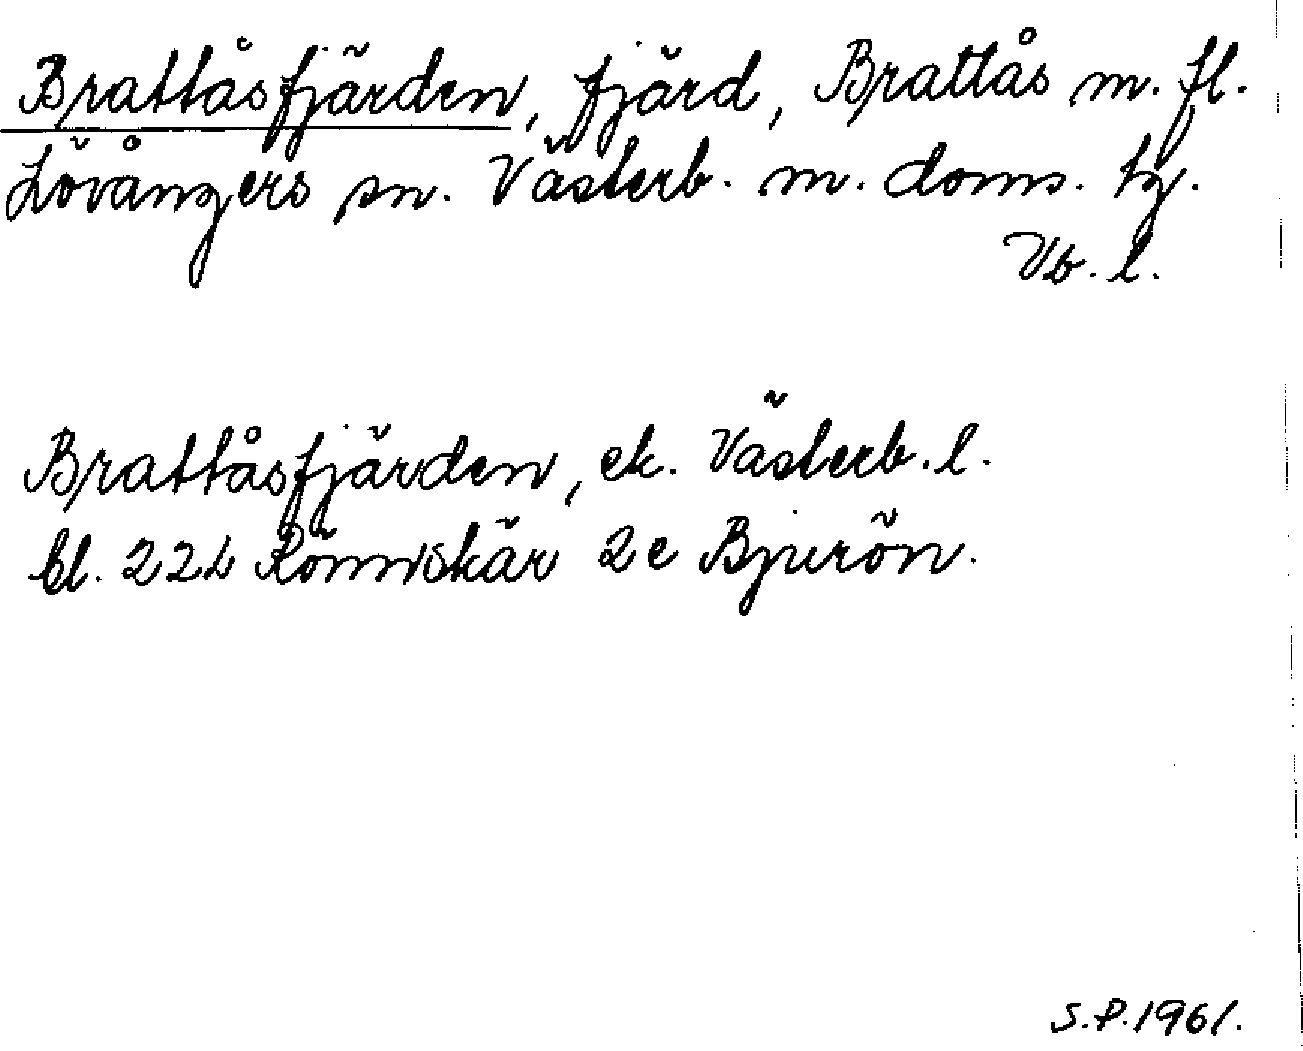 Brattåsfjärden, fjärd, Brattås m. fl.
Lövångers sn. Västerb. m. doms. tg.
Vb. l.
Brattåsfjärden, ek. Västerb. l.
bl. 224 Rönnskär 2e Bjurön.
S.P. 1961.